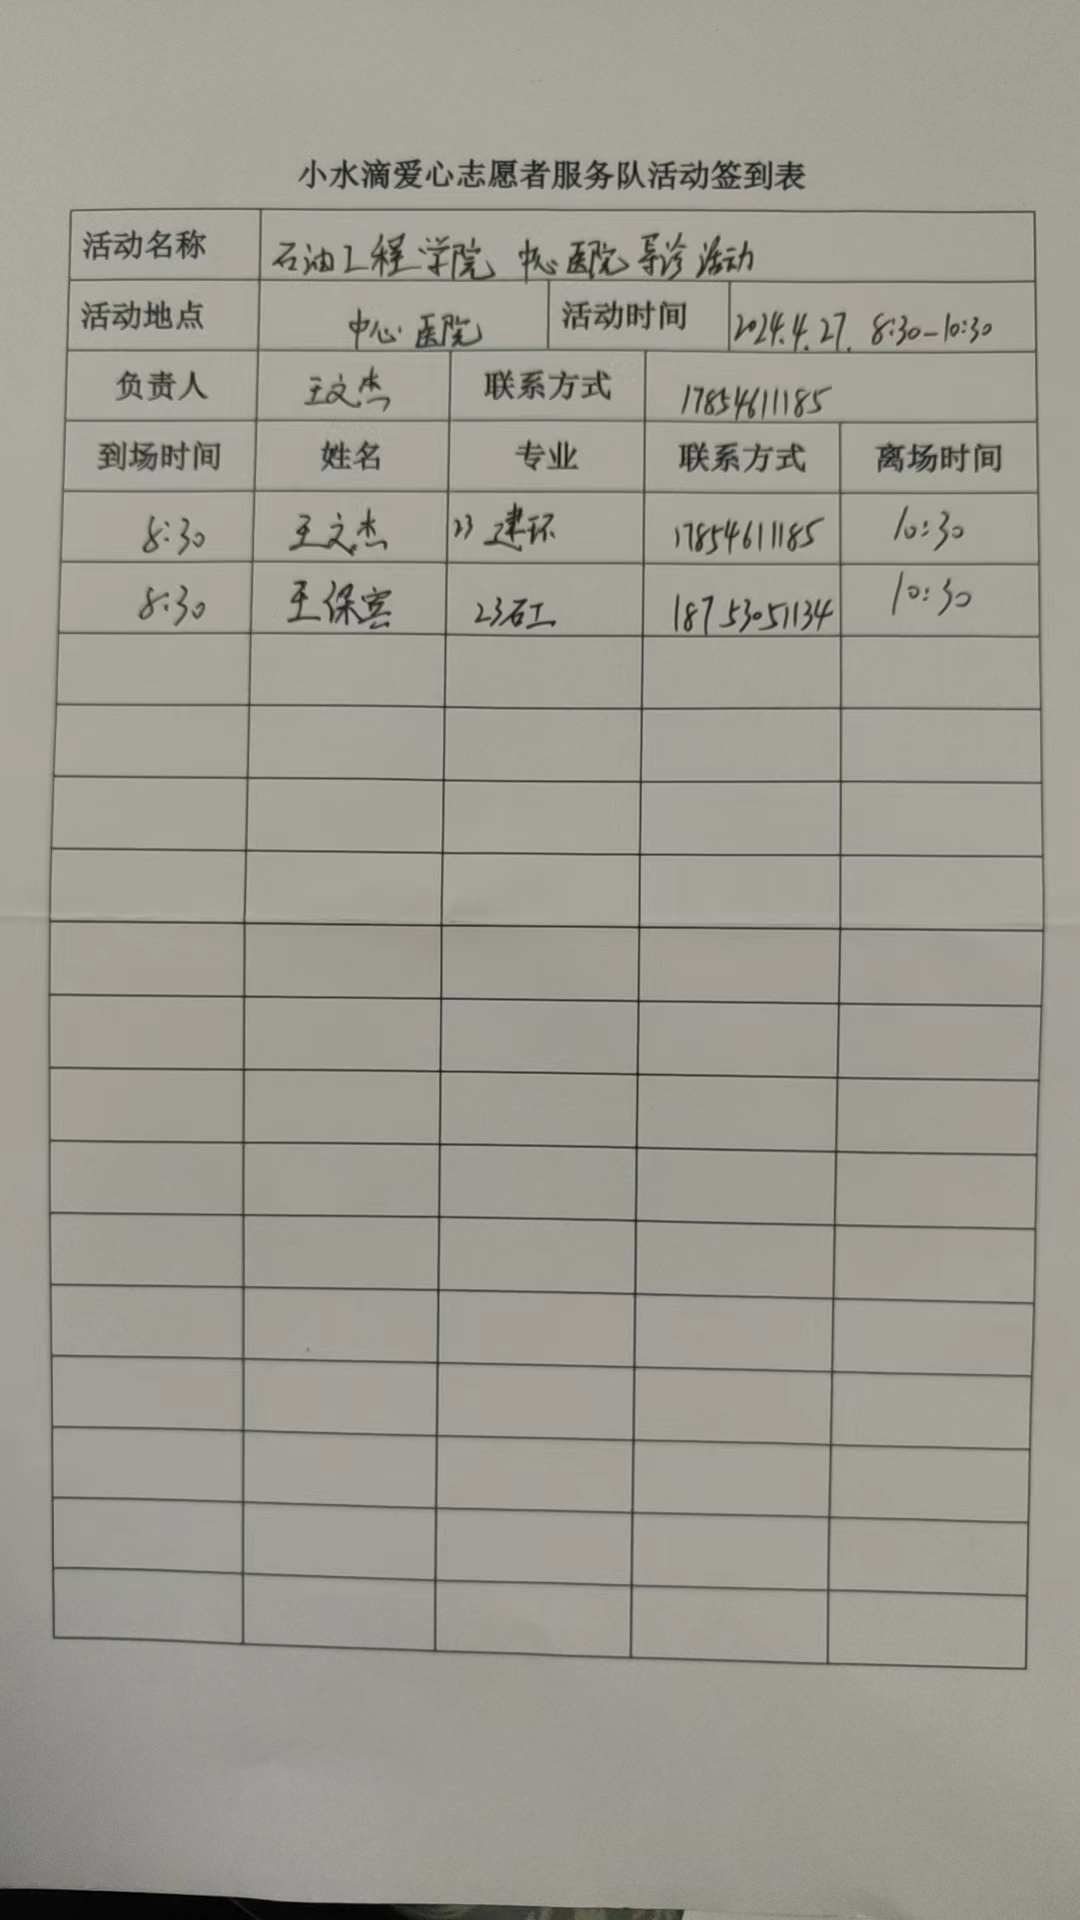 小水滴爱心志愿者服务队活动签到表
活动名称 石油工程学院 中心医院导诊活动
活动地点 中心医院 活动时间 2024.4.27. 8:30-10:30
负责人 王文杰 联系方式 17854611185
到场时间 姓名 专业 联系方式 离场时间
8:30 王文杰 23建环 17854611185 10:30
8:30 王保宾 23石工 18753051134 10:30